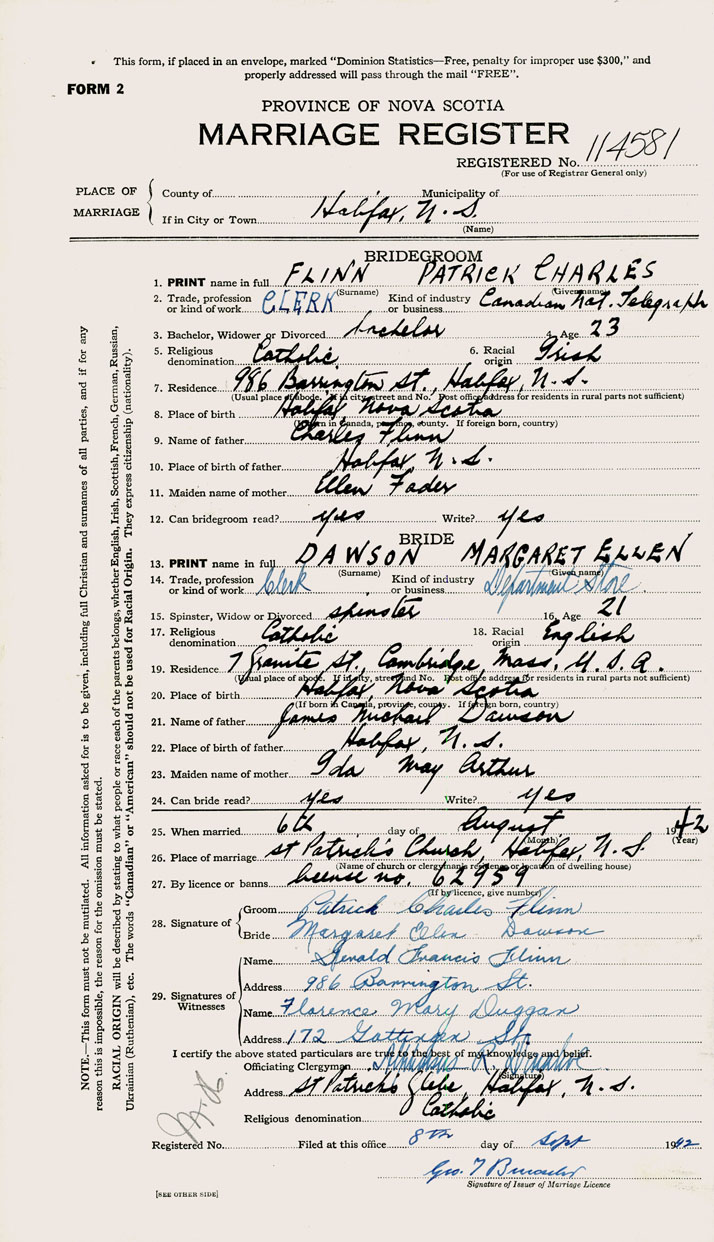 This form, if placed in an envelope, marked "Dominion Statistics—Free, penalty for improper use $300," and
properly addressed will pass through the mail "FREE".
FORM 2
PROVINCE OF NOVA SCOTIA
MARRIAGE REGISTER
REGISTERED No. 114581
(For use of Registrar General only)
PLACE OF MARRIAGE
County of Municipality of
If in City or Town Halifax, N.S.
(Name)
BRIDEGROOM
1. PRINT name in full FLINN PATRICK CHARLES
(Surname) (Given name)
2. Trade, profession or kind of work CLERK Kind of industry or business Canadian Nat. Telegraph
3. Bachelor, Widower or Divorced bachelor 4. Age 23
5. Religious denomination Catholic 6. Racial origin Irish
7. Residence 986 Barrington St., Halifax, N.S.
(Usual place of abode. If in city, street and No. Post office address for residents in rural parts not sufficient)
8. Place of birth Halifax, Nova Scotia
(If born in Canada, province, county. If foreign born, country)
9. Name of father Charles Flinn
10. Place of birth of father Halifax, N.S.
11. Maiden name of mother Ellen Fader
12. Can bridegroom read? yes Write? yes
BRIDE
13. PRINT name in full DAWSON MARGARET ELLEN
(Surname) (Given name)
14. Trade, profession or kind of work Clerk Kind of industry or business Department Store
15. Spinster, Widow or Divorced spinster 16. Age 21
17. Religious denomination Catholic 18. Racial origin English
19. Residence 7 Granite St., Cambridge, Mass, U.S.A.
(Usual place of abode. If in city, street and No. Post office address for residents in rural parts not sufficient)
20. Place of birth Halifax, Nova Scotia
(If born in Canada, province, county. If foreign born, country)
21. Name of father James Michael Dawson
22. Place of birth of father Halifax, N.S.
23. Maiden name of mother Ida May Arthur
24. Can bride read? yes Write? yes
25. When married 6th day of August 1942
(Month) (Year)
26. Place of marriage St Patrick's Church, Halifax, N.S.
(Name of church or clergyman's residence or location of dwelling house)
27. By licence or banns license no. 62959
(If by licence, give number)
28. Signature of
Groom Patrick Charles Flinn
Bride Margaret Ellen Dawson
29. Signatures of Witnesses
Name Gerald Francis Flinn
Address 986 Barrington St.
Name Florence Mary Duggan
Address 172 Gottingen St.
I certify the above stated particulars are true to the best of my knowledge and belief.
Officiating Clergyman
(Signature)
Address St Patrick's Glebe, Halifax, N.S.
Religious denomination Catholic
Registered No. Filed at this office 8th day of Sept 1942
Geo. T
Signature of Issuer of Marriage Licence
[SEE OTHER SIDE]
NOTE.—This form must not be mutilated. All information asked for is to be given, including full Christian and surnames of all parties, and if for any
reason this is impossible, the reason for the omission must be stated.
RACIAL ORIGIN will be described by stating to what people or race each of the parents belongs, whether English, Irish, Scottish, French, German, Russian,
Ukrainian (Ruthenian), etc. The words "Canadian" or "American" should not be used for Racial Origin. They express citizenship (nationality).